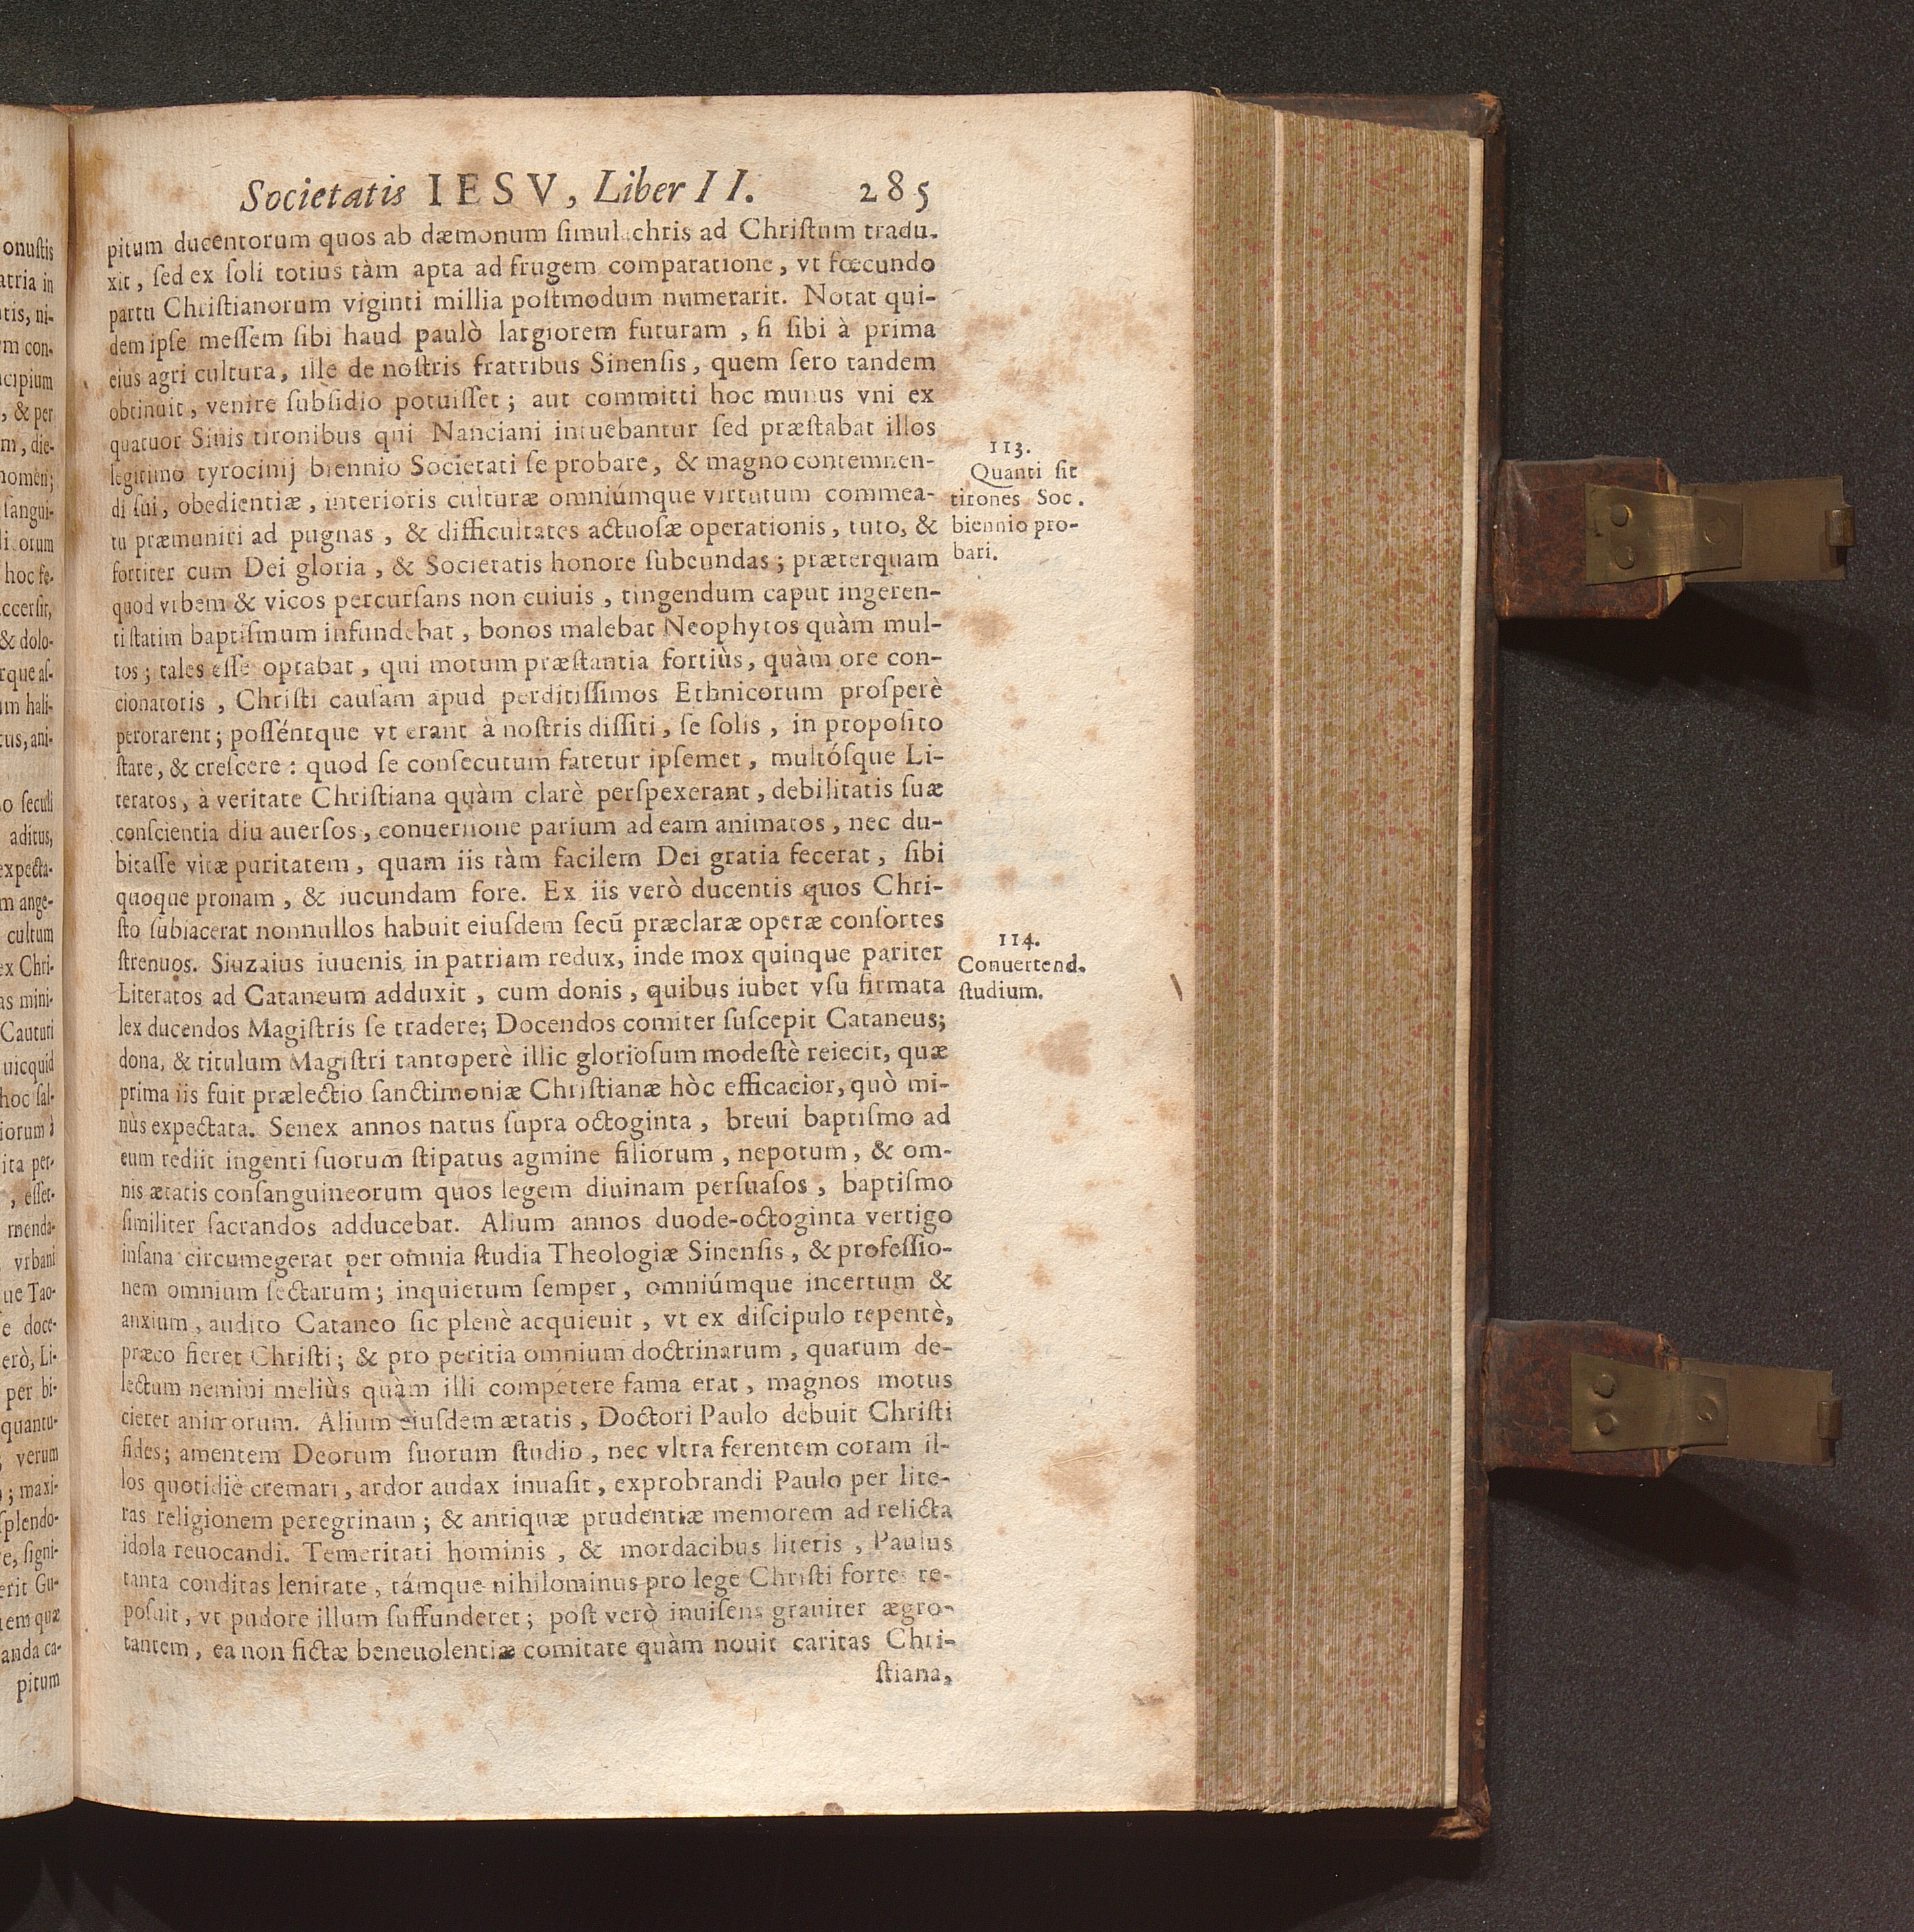 Societatis IESV, Liber II. 285
pitum ducentorum quos ab dæmonum ſimulachris ad Chriſtum tradu-
xit, ſed ex ſoli totius tàm apta ad frugem comparatione, vt fœcundo
partu Chriſtianorum viginti millia poſtmodum numerarit. Notat qui-
dem ipſe meſſem ſibi haud paulò largiorem futuram, ſi ſibi à prima
eius agri cultura, ille de noſtris fratribus Sinenſis, quem ſero tandem
obtinuit, venire ſubſidio potuiſſet; aut committi hoc munus vni ex
quatuor Sinis tironibus qui Nanciani intuebantur ſed præſtabat illos
legitimo tyrocinij biennio Societati ſe probare, & magno contemnen-
di ſui, obedientiæ, interioris culturæ omniúmque virtutum commea-
tu præmuniri ad pugnas, & difficultates actuoſæ operationis, tuto, &
fortiter cum Dei gloria, & Societatis honore ſubeundas; præterquam
quod vrbem & vicos percurſans non cuiuis, tingendum caput ingeren-
ti ſtatim baptiſmum infundebat, bonos malebat Neophytos quàm mul-
tos; tales eſſe optabat, qui motum præſtantia fortiùs, quàm ore con-
cionatoris, Chriſti cauſam apud perditiſſimos Ethnicorum proſperè
perorarent; poſſéntque vt erant à noſtris diſſiti, ſe ſolis, in propoſito
ſtare, & creſcere: quod ſe conſecutum fatetur ipſemet, multóſque Li-
teratos, à veritate Chriſtiana quàm clarè perſpexerant, debilitatis ſuæ
conſcientia diu auerſos, conuerſione parium ad eam animatos, nec du-
bitaſſe vitæ puritatem, quam iis tàm facilem Dei gratia fecerat, ſibi
quoque pronam, & iucundam fore. Ex iis verò ducentis quos Chri-
ſto ſubiacerat nonnullos habuit eiuſdem ſecũ præclaræ operæ conſortes
ſtrenuos. Siuzaius iuuenis in patriam redux, inde mox quinque pariter
Literatos ad Cataneum adduxit, cum donis, quibus iubet vſu firmata
lex ducendos Magiſtris ſe tradere; Docendos comiter ſuſcepit Cataneus;
dona, & titulum Magiſtri tantoperè illic glorioſum modeſtè reiecit, quæ
prima iis fuit prælectio ſanctimoniæ Chriſtianæ hòc efficacior, quò mi-
nùs expectata. Senex annos natus ſupra octoginta, breui baptiſmo ad
eum rediit ingenti ſuorum ſtipatus agmine filiorum, nepotum, & om-
nis ætatis conſanguineorum quos legem diuinam perſuaſos, baptiſmo
ſimiliter ſacrandos adducebat. Alium annos duode-octoginta vertigo
inſana circumegerat per omnia ſtudia Theologiæ Sinenſis, & profeſſio-
nem omnium ſectarum; inquietum ſemper, omniúmque incertum &
anxium, audito Cataneo ſic plenè acquieuit, vt ex diſcipulo repentè,
præco fieret Chriſti; & pro peritia omnium doctrinarum, quarum de-
lectum nemini meliùs quàm illi compétere fama erat, magnos motus
cieret animorum. Alium eiuſdem ætatis, Doctori Paulo debuit Chriſti
fides; amentem Deorum ſuorum ſtudio, nec vltra ferentem coram il-
los quotidiè cremari, ardor audax inuaſit, exprobrandi Paulo per lite-
ras religionem peregrinam; & antiquæ prudentiæ memorem ad relicta
idola reuocandi. Temeritati hominis, & mordacibus literis, Paulus
tanta conditas lenitate, támque nihilominus pro lege Chriſti fortes re-
poſuit, vt pudore illum ſuffunderet; poſt verò inuiſens grauiter ægro-
tantem, ea non fictæ beneuolentiæ comitate quàm nouit caritas Chri-
ſtiana,
113.
Quanti ſit
tirones Soc.
biennio pro-
bari.
114.
Conuertend.
ſtudium.
onuſtis
atria in
tis, ni-
m con-
cipium
, & per
m, die-
nomen;
ſangui-
hoc fe-
ccerſit,
& dolo-
rque aſ-
um hali-
tus, ani-
o ſeculi
aditus,
expecta-
m ange-
cultum
ex Chri-
as mini-
Cauturi
uicquid
hoc ſal-
iorum à
ita per-
, eſſet-
menda-
vrbani
ue Tao-
e doce-
erò, Li-
per bi-
quantu-
verum
; maxi-
ſplendo-
re, ſigni-
erit Gu-
tem quæ
anda ca-
pitum